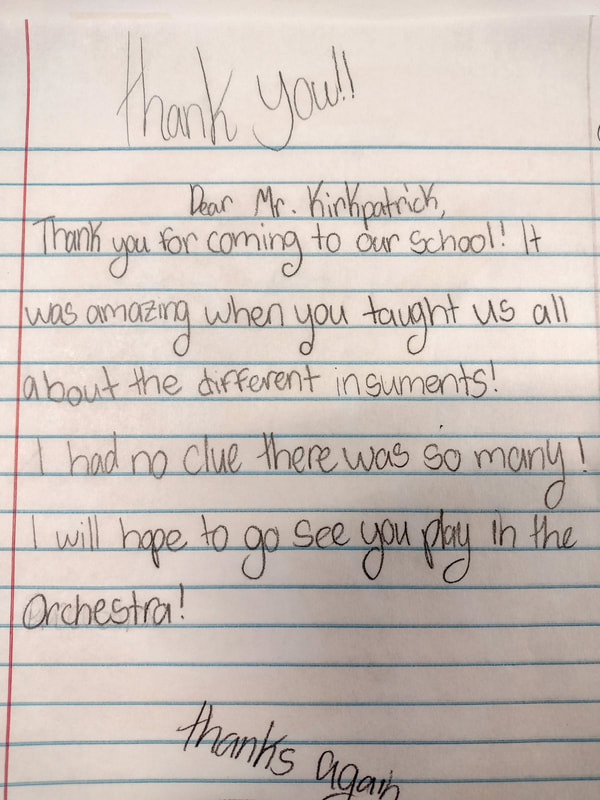 thank you!!
Dear Mr. Kirkpatrick,
Thank you for coming to our school! It
was amazing when you taught us all
about the different insuments!
I had no clue there was so many!
I will hope to go see you play in the
Orchestra!
thanks again